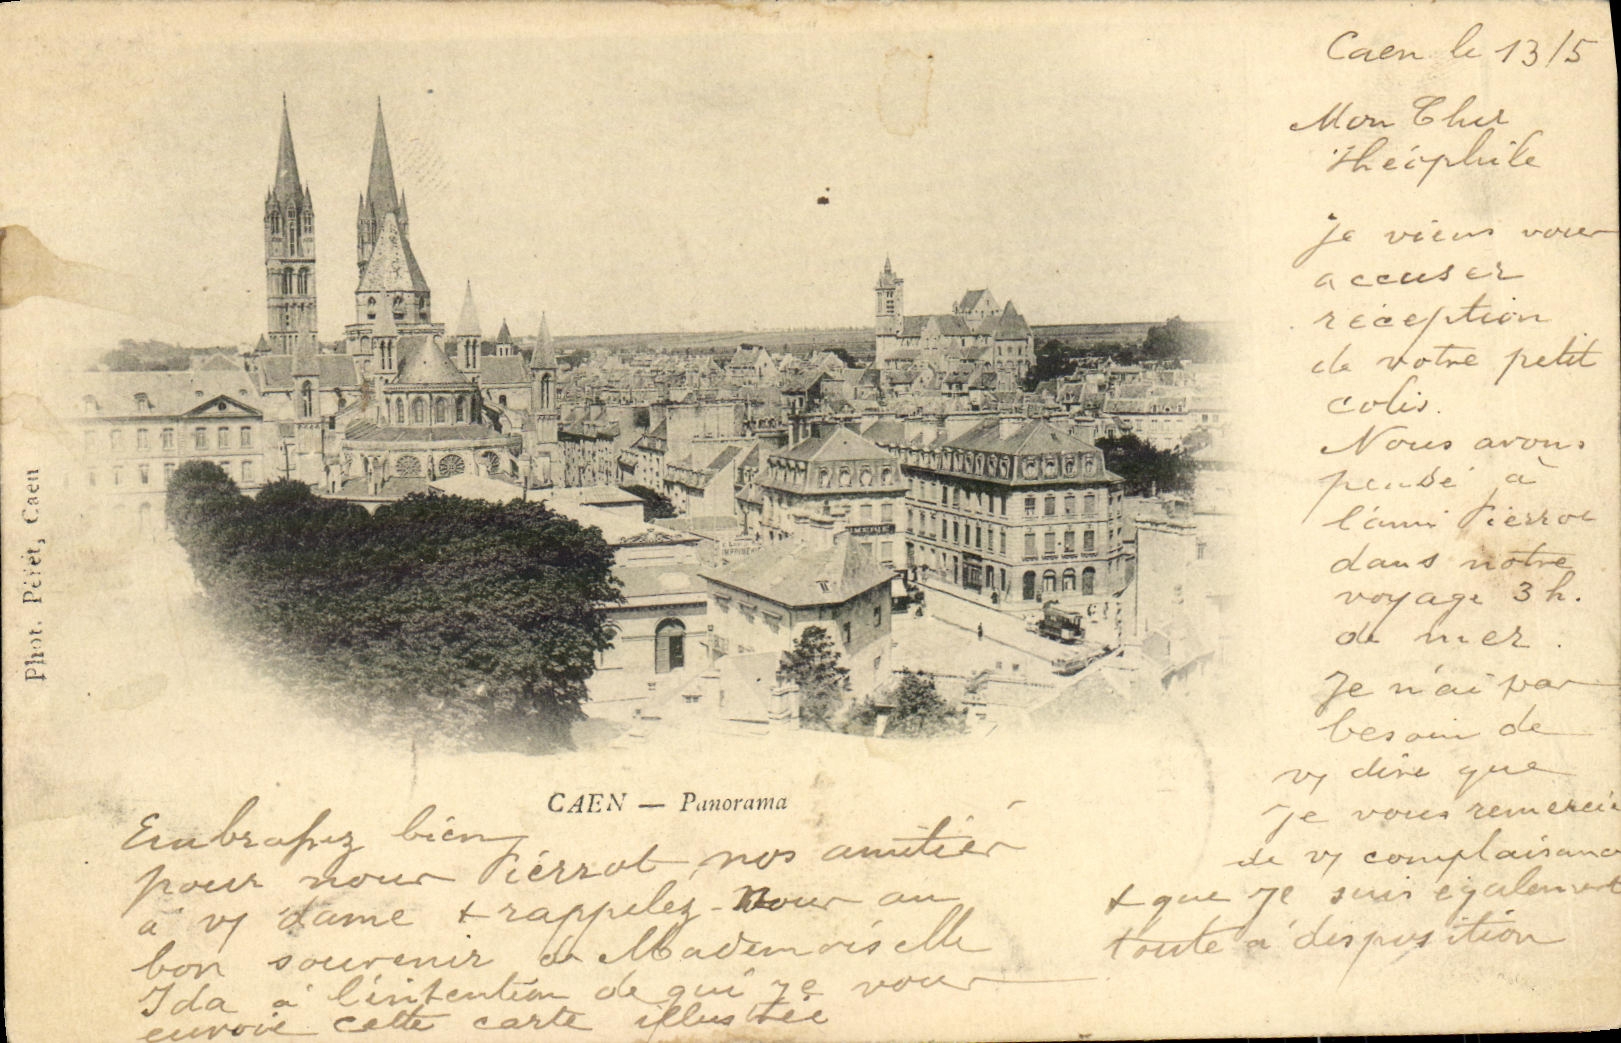 Caen le 13/5
Mon Cher
Théophile
je viens vous
accuser
réception
de votre petit
colis.
Nous avons
pensé à
l'ami Pierrot
dans notre
voyage 3 h.
de mer.
Je n'ai pas
besoin de
vs dire que
je vous remercie
de vs complaisance
+ que je suis également
toute à disposition
Phot. Péret, Caen
IMPRIMERIE
CAEN — Panorama
Embrassez bien
pour nous Pierrot, nos amitiés
à vs dame + rappelez-nous au
bon souvenir de Mademoiselle
Ida à l'intention de qui je vous
envoie cette carte illustrée